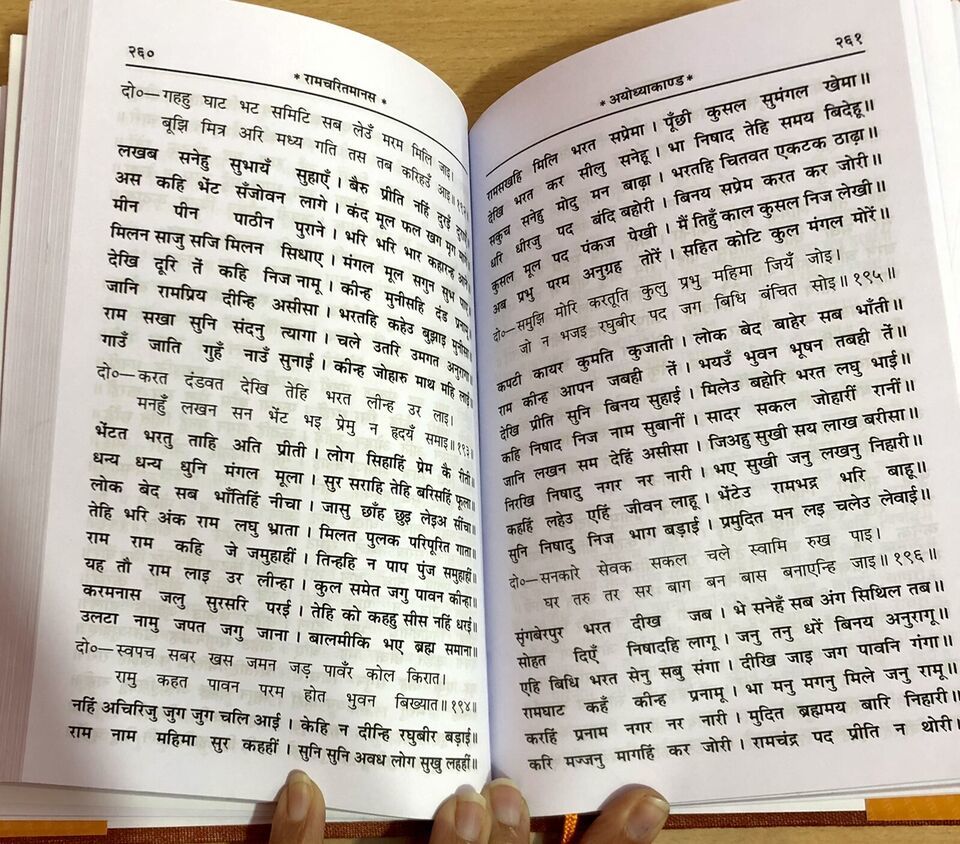 २६०
* रामचरितमानस *
दो०—गहहु घाट भट समिटि सब लेउँ मरम मिलि जाइ।
बूझि मित्र अरि मध्य गति तस तब करिहउँ आइ॥१९२॥
लखब सनेहु सुभायँ सुहाएँ। बैरु प्रीति नहिं दुरइँ दुराएँ॥
अस कहि भेंट सँजोवन लागे। कंद मूल फल खग मृग मागे॥
मीन पीन पाठीन पुराने। भरि भरि भार कहारन्ह आने॥
मिलन साजु सजि मिलन सिधाए। मंगल मूल सगुन सुभ पाए॥
देखि दूरि तें कहि निज नामू। कीन्ह मुनीसहि दंड प्रनामू॥
जानि रामप्रिय दीन्हि असीसा। भरतहि कहेउ बुझाइ मुनीसा॥
राम सखा सुनि संदनु त्यागा। चले उतरि उमगत अनुरागा॥
गाउँ जाति गुहँ नाउँ सुनाई। कीन्ह जोहारु माथ महि लाई॥
दो०—करत दंडवत देखि तेहि भरत लीन्ह उर लाइ।
मनहुँ लखन सन भेंट भइ प्रेमु न हृदयँ समाइ॥१९३॥
भेंटत भरतु ताहि अति प्रीती। लोग सिहाहिं प्रेम कै रीती॥
धन्य धन्य धुनि मंगल मूला। सुर सराहि तेहि बरिसहिं फूला॥
लोक बेद सब भाँतिहिं नीचा। जासु छाँह छुइ लेइअ सींचा॥
तेहि भरि अंक राम लघु भ्राता। मिलत पुलक परिपूरित गाता॥
राम राम कहि जे जमुहाहीं। तिन्हहि न पाप पुंज समुहाहीं॥
यह तौ राम लाइ उर लीन्हा। कुल समेत जगु पावन कीन्हा॥
करमनास जलु सुरसरि परई। तेहि को कहहु सीस नहिं धरई॥
उलटा नामु जपत जगु जाना। बालमीकि भए ब्रह्म समाना॥
दो०—स्वपच सबर खस जमन जड़ पावँर कोल किरात।
रामु कहत पावन परम होत भुवन बिख्यात॥१९४॥
नहिं अचिरिजु जुग जुग चलि आई। केहि न दीन्हि रघुबीर बड़ाई॥
राम नाम महिमा सुर कहहीं। सुनि सुनि अवध लोग सुखु लहहीं॥
२६१
* अयोध्याकाण्ड *
रामसखहि मिलि भरत सप्रेमा। पूँछी कुसल सुमंगल खेमा॥
देखि भरत कर सीलु सनेहू। भा निषाद तेहि समय बिदेहू॥
सकुच सनेहु मोदु मन बाढ़ा। भरतहि चितवत एकटक ठाढ़ा॥
धरि धीरजु पद बंदि बहोरी। बिनय सप्रेम करत कर जोरी॥
कुसल मूल पद पंकज पेखी। मैं तिहुँ काल कुसल निज लेखी॥
अब प्रभु परम अनुग्रह तोरें। सहित कोटि कुल मंगल मोरें॥
दो०—समुझि मोरि करतूति कुलु प्रभु महिमा जियँ जोइ।
जो न भजइ रघुबीर पद जग बिधि बंचित सोइ॥१९५॥
कपटी कायर कुमति कुजाती। लोक बेद बाहेर सब भाँती॥
राम कीन्ह आपन जबही तें। भयउँ भुवन भूषन तबही तें॥
देखि प्रीति सुनि बिनय सुहाई। मिलेउ बहोरि भरत लघु भाई॥
कहि निषाद निज नाम सुबानीं। सादर सकल जोहारीं रानीं॥
जानि लखन सम देहिं असीसा। जिअहु सुखी सय लाख बरीसा॥
निरखि निषादु नगर नर नारी। भए सुखी जनु लखनु निहारी॥
कहहिं लहेउ एहिं जीवन लाहू। भेंटेउ रामभद्र भरि बाहू॥
सुनि निषादु निज भाग बड़ाई। प्रमुदित मन लइ चलेउ लेवाई॥
दो०—सनकारे सेवक सकल चले स्वामि रुख पाइ।
घर तरु तर सर बाग बन बास बनाएन्हि जाइ॥१९६॥
सृंगबेरपुर भरत दीख जब। भे सनेहँ सब अंग सिथिल तब॥
सोहत दिएँ निषादहि लागू। जनु तनु धरें बिनय अनुरागू॥
एहि बिधि भरत सेनु सबु संगा। दीखि जाइ जग पावनि गंगा॥
रामघाट कहँ कीन्ह प्रनामू। भा मनु मगनु मिले जनु रामू॥
करहिं प्रनाम नगर नर नारी। मुदित ब्रह्ममय बारि निहारी॥
करि मज्जनु मागहिं कर जोरी। रामचंद्र पद प्रीति न थोरी॥